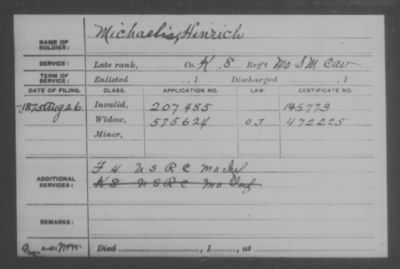 NAME OF SOLDIER: Michaelis, Hinrich
SERVICE: Late rank, Co. K. 8 Reg't Mo S M Cav
TERM OF SERVICE: Enlisted , 1 Discharged , 1
DATE OF FILING. CLASS. APPLICATION NO. LAW. CERTIFICATE NO.
1875 Aug 26 Invalid, 207485 145773
Widow, 575624 O.J 472225
Minor,
ADDITIONAL SERVICES: F 4 U S R C Mo Inf
K 8 U S R C Mo Inf
REMARKS:
Died , 1 , at